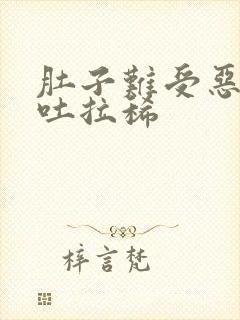 肚子難受惡
吐拉稀
梓言梵